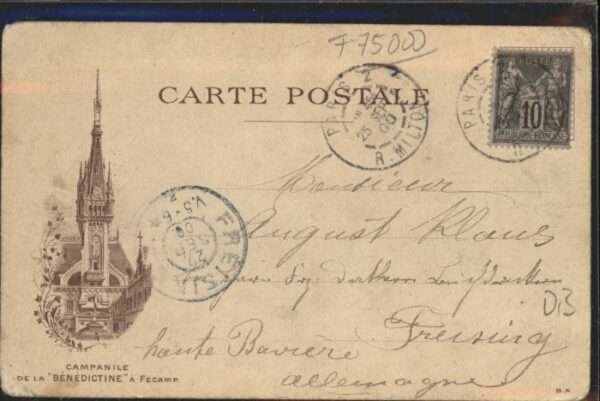 F75000
CARTE POSTALE
PARIS
R. MILTON
25
00
PARIS
10
FREISING
V.5-6
27
SEP
00
Monsieur
August Klaus
Freising
haute Bavière
Allemagne
DB
CAMPANILE
DE LA "BÉNÉDICTINE" À FECAMP.
B.K.